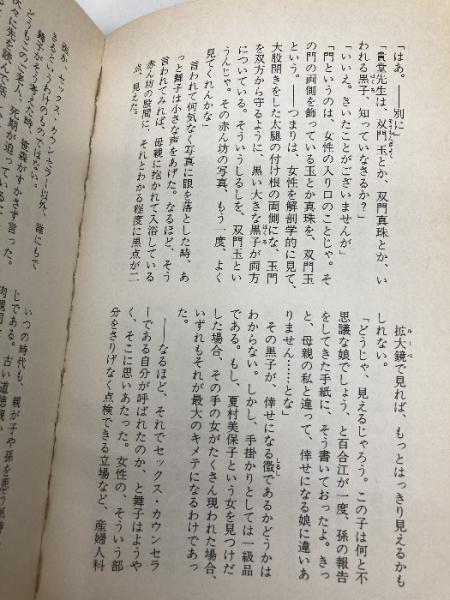 「はあ。――別に」
「貴堂先生は、双門玉とか、双門真珠とか、い
われる黒子、知っていなさるか？」
「いいえ。きいたことがございませんが」
「門というのは、女性の入り口のことじゃ。そ
の門の両側を飾っている玉とか真珠を、双門玉
という。――つまりは、女性を解剖学的に見て、
大股開きをした太腿の付け根の両側にな、玉門
を双方から守るように、黒い大きな黒子が両方
についている。そういうしるしを、双門玉とい
うんじゃ。その赤ん坊の写真、もう一度、よく
見てくれんかな」
言われて何気なく写真に眼を落とした時、あ
っと舞子は小さな声をあげた。なるほど、そう
言われてみれば、母親に抱かれて入浴している
赤ん坊の股間に、それとわかる程度に黒点が二
点、見えた。
拡大鏡で見れば、もっとはっきり見えるかも
ルーペ
しれない。
「どうじゃ、見えるじゃろう。この子は何と不
思議な娘でしょう、と百合江が一度、孫の報告
をしてきた手紙に、そう書いておったよ。きっ
と、母親の私と違って、倖せになる娘に違いあ
りません……とな」
その黒子が、倖せになる徴であるかどうかは
しるし
わからない。しかし、手掛かりとしては一級品
である。もし、夏村美保子という女を見つけだ
した場合、その手の女がたくさん現われた場合、
いずれもそれが最大のキメテになるわけであっ
た。
――なるほど、それでセックス・カウンセラ
ーである自分が呼ばれたのか、と舞子はようや
く、そこに思いあたった。女性の、そういう部
分をさりげなく点検できる立場など、産婦人科
セックス・カウンセラー以外、誰にもで
きるというわけのものではない。
舞子がそう考えた時、笹森がすかさず言った。
いつの時代も、親が子や孫を思う
じである。古い道徳観